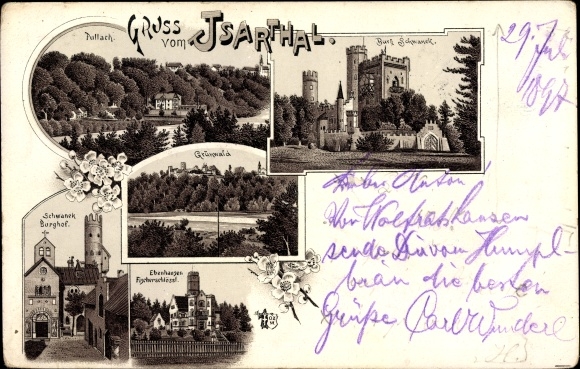 GRUSS
vom ISARTHAL.
Pullach.
Burg Schwaneck.
Grünwald
Schwaneck
Burghof.
Ebenhausen
Fischerschlössl.
29. Juli
1897
Lieber Anton!
Von Wolfratshausen
sende Dir vom Humpl-
bräu die besten
Grüße Carl Wunderl